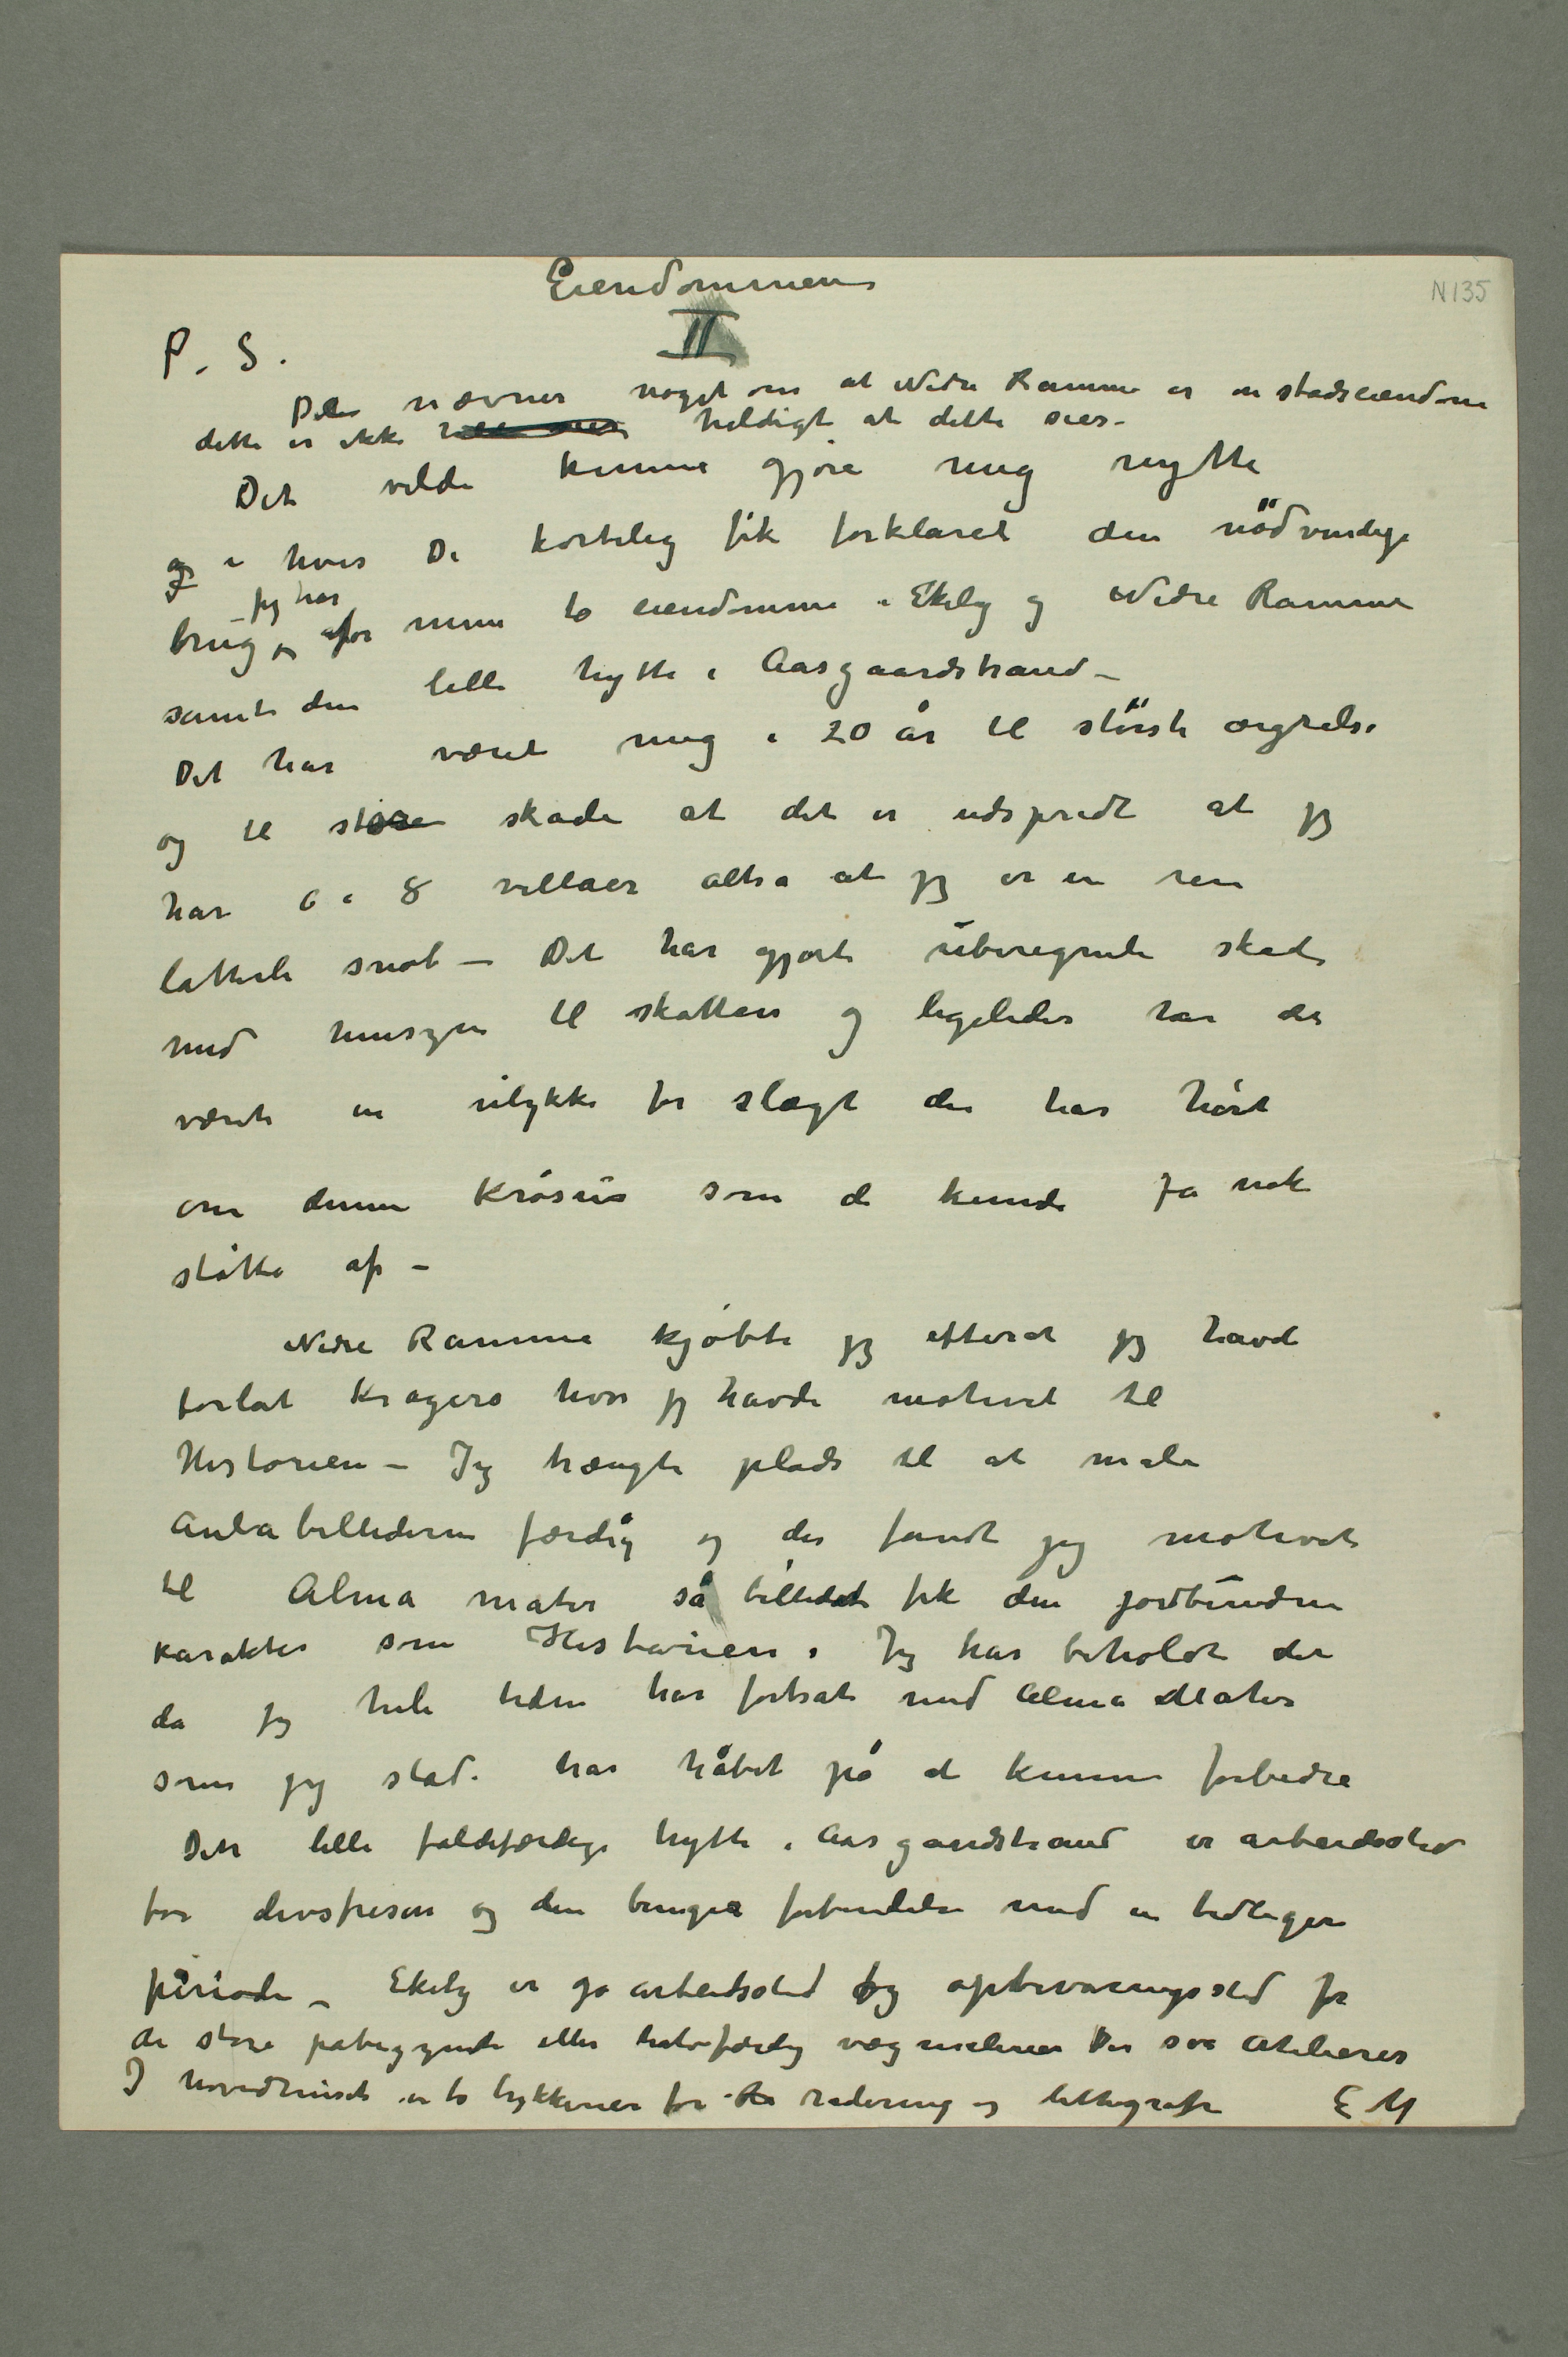 Eiendommen
N 135
II
P. S.
De nævner noget om at Nedre Ramme er en stadseiendom
dette er ikke heldigt at dette sies –
Det vilde kunne gjøre mig nytte
og i hvis De kortelig fik forklaret den nödvendige
jeg har
brug af mine to eiendomme i Ekely og Nedre Ramme
samt den lille hytte i Aasgaardstrand –
Det har været mig i 20 år til störste ærgrelse
og til stor skade at det er udspredt at jeg
har 6 a 8 villaer altså at jeg er en ren
latterli snob – Det har gjort uberegnli skade
med hensyn til skatten og ligeledes har det
været en ulykke for slægt der har hört
om denne Krösus som de kunde få nok
stötte af –
Nedre Ramme kjöbte jeg efterat jeg havde
forlat Kragerø hvor jeg havde motivet til
Historien – Jeg trængte plads til at male
Aulabillederne færdig og der fandt jeg motivet
til Alma mater så billedet fik den jordbundne
karakter som Historien. Jeg har beholdt det
da jeg hele tiden har fortsat med Alma Mater
som jeg stadi har håbet på at kunne forbedre
Den lille faldefærdige hytte i Aasgaardstrand er arbeidssted
for livsfrisen og den bringer forbindelse med en tidligere
periode – Ekely er jo arbeidssted og opbevaringssted for
de store påbegyndte eller halvfærdig vægmalerier Der såe Atelierer
I hovedhuset er to trykkerier for radering og lithografi E M